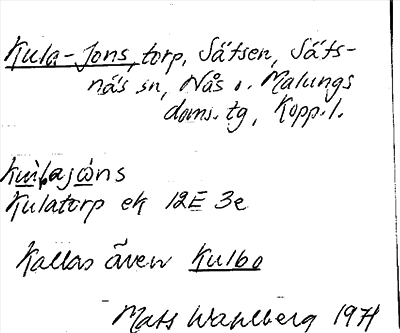 Kula-Jons, torp, Sätsen, Säts-
näs sn, Nås o. Malungs
doms.tg, Kopp.l.
Kulatorp ek 12E 3e
Kallas även Kulbo
Mats Wahlberg 1971